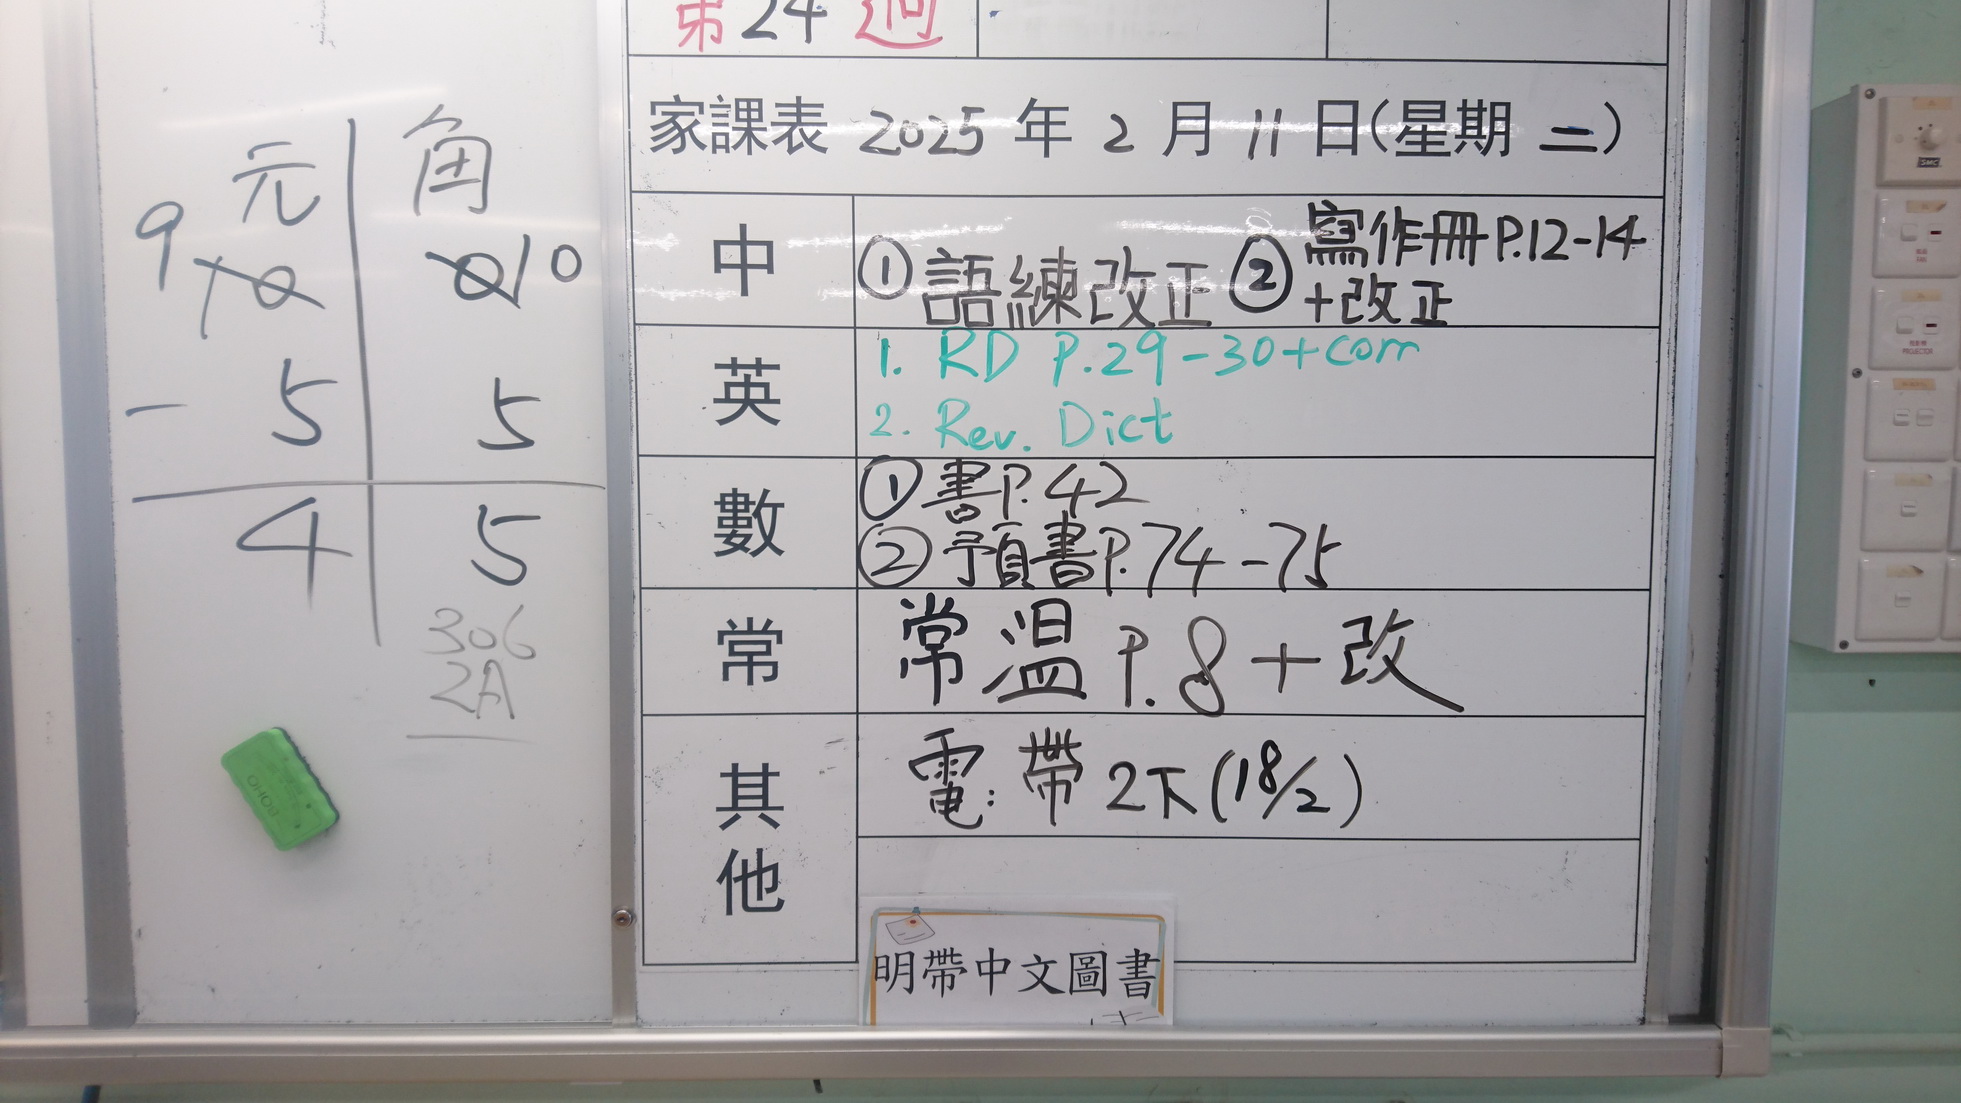 第24週
家課表 2025年2月11日(星期二)
中
①語練改正 ②寫作冊P.12-14
+改正
英
1. RD P.29-30+corr
2. Rev. Dict
數
①書P.42
②預書P.74-75
常
常溫P.8+改
其他
電:帶2下(18/2)
明帶中文圖書
元 角
9 10 0 10
- 5 5
4 5
306
2A